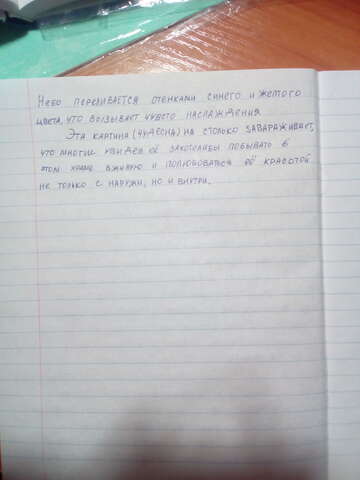 Небо переливается отенками синего и желтого
цвета, что вызывает чувсто наслаждения
Эта картина (чудесна) на столько завараживает,
что многие увидев её захотелабы побывать в
этом храме вживую и полюбоваться её красотой
не только с наружи, но и внутри.